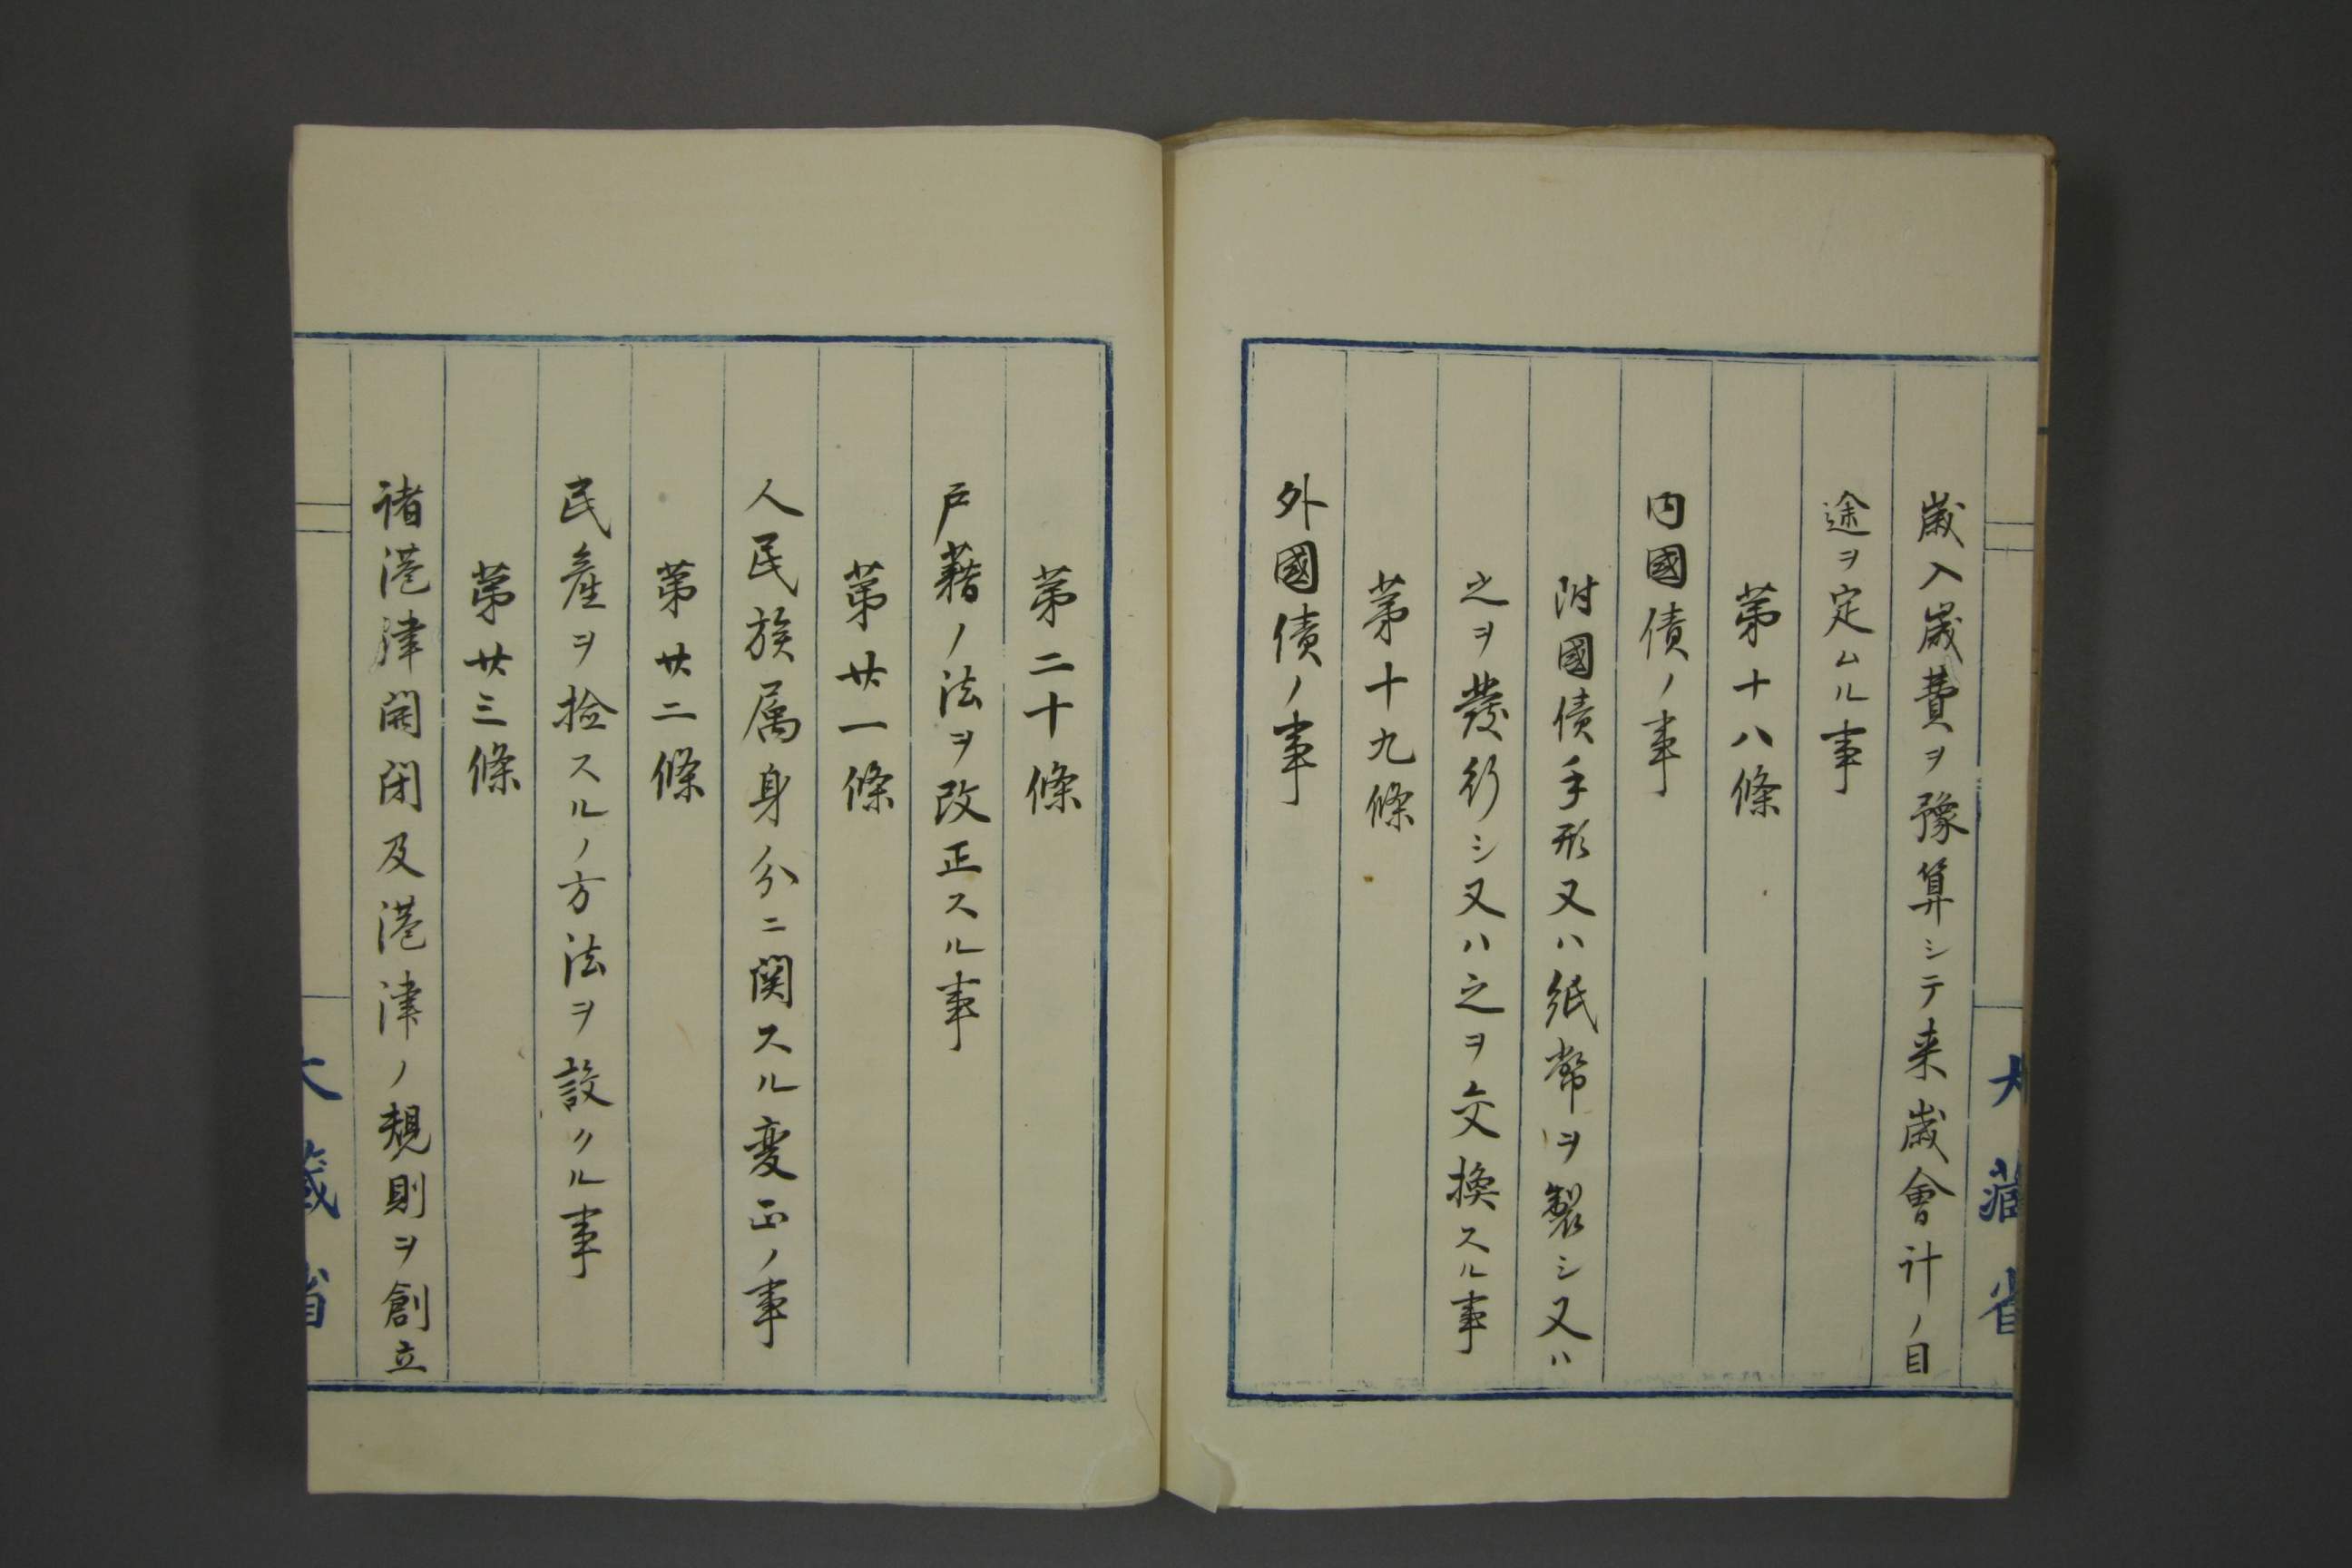 歳入歳費ヲ豫算シテ来歳會計ノ目
途ヲ定ムル事
第十八條
内國債ノ事
附國債手形又ハ紙幣ヲ製シ又ハ
之ヲ發行シ又ハ之ヲ交換スル事
第十九條
外國債ノ事
大藏省
第二十條
戸藉ノ法ヲ改正スル事
第廿一條
人民族属身分ニ関スル変正ノ事
第廿二條
民産ヲ捡スルノ方法ヲ設クル事
第廿三條
諸港津開閉及港津ノ規則ヲ創立
大藏省